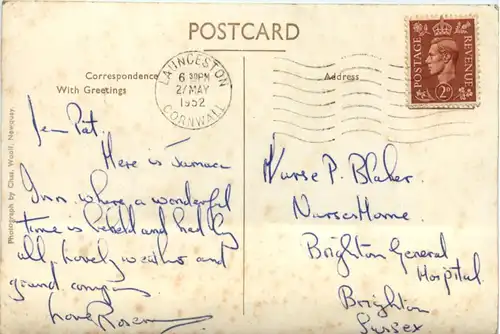 POSTCARD
Correspondence
With Greetings
Address
LAUNCESTON
6 30PM
2/MAY
1952
CORNWALL
POSTAGE
REVENUE
2D
Photograph by Chas. Woolf, Newquay.
Dear Pat,
Here is Jamaica
Inn where a wonderful
time is beheld and had by
all, lovely weather and
grand company
Love Rosem
Nurse P. Blaker
Nurses Home.
Brighton General
Hospital.
Brighton
Sussex